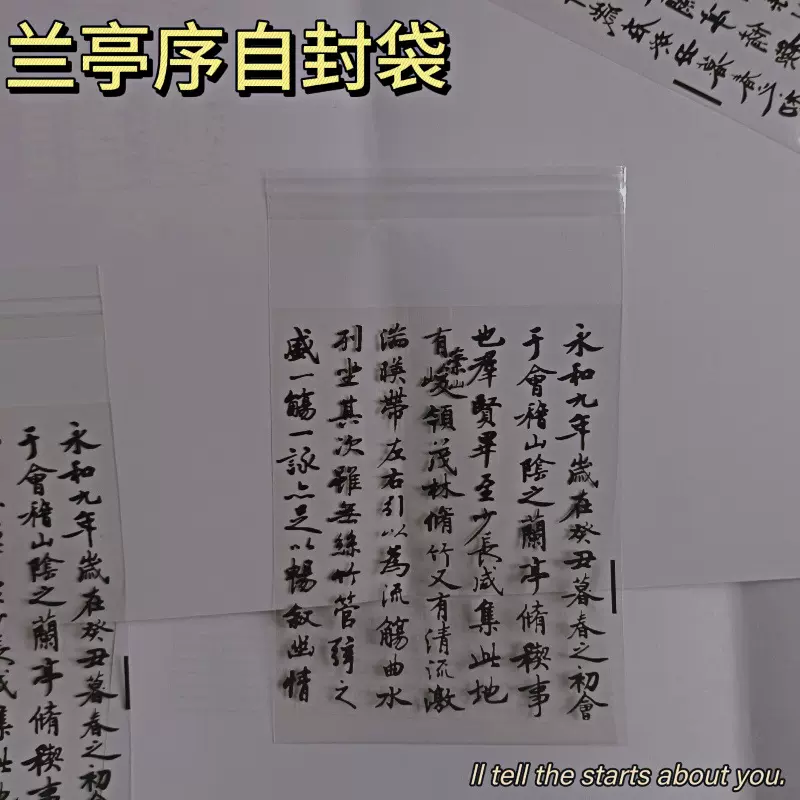 兰亭序自封袋
永和九年歲在癸丑暮春之初會
于會稽山陰之蘭亭脩稧事
也羣賢畢至少長咸集此地
有崇山峻領茂林脩竹又有清流激
湍暎帶左右引以為流觴曲水
列坐其次雖無絲竹管弦之
盛一觴一詠亦足以暢敘幽情
永和九年歲在癸丑暮春之初
于會稽山陰之蘭亭脩稧事
ll tell the starts about you.